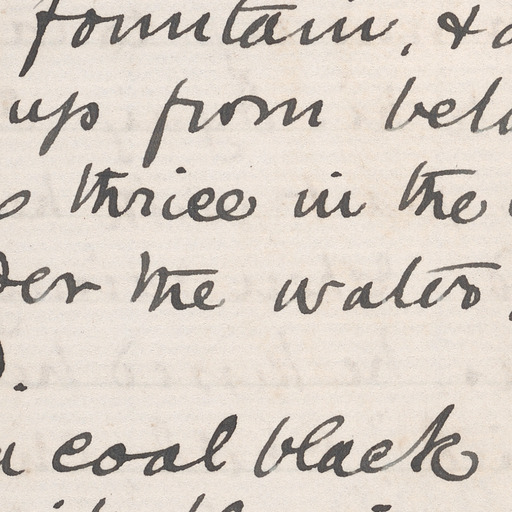 fountain, &
up from
thrice in the
the waters
coal black